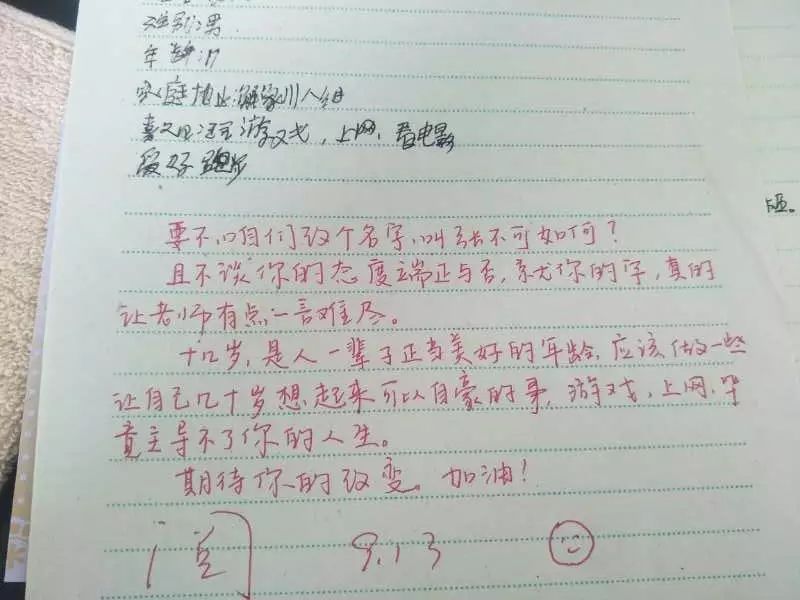 性别:男
年龄:17
家庭地址:川八组
喜欢玩游戏,上网,看电影
爱好 跑步
要不咱们改个名字,叫张不可如何?
且不谈你的态度端正与否,就你的字,真的
让老师有点一言难尽。
十几岁,是人一辈子正当美好的年龄,应该做一些
让自己几十岁想起来可以自豪的事,游戏,上网,毕
竟主导不了你的人生。
期待你的改变。加油!
阅 9.13